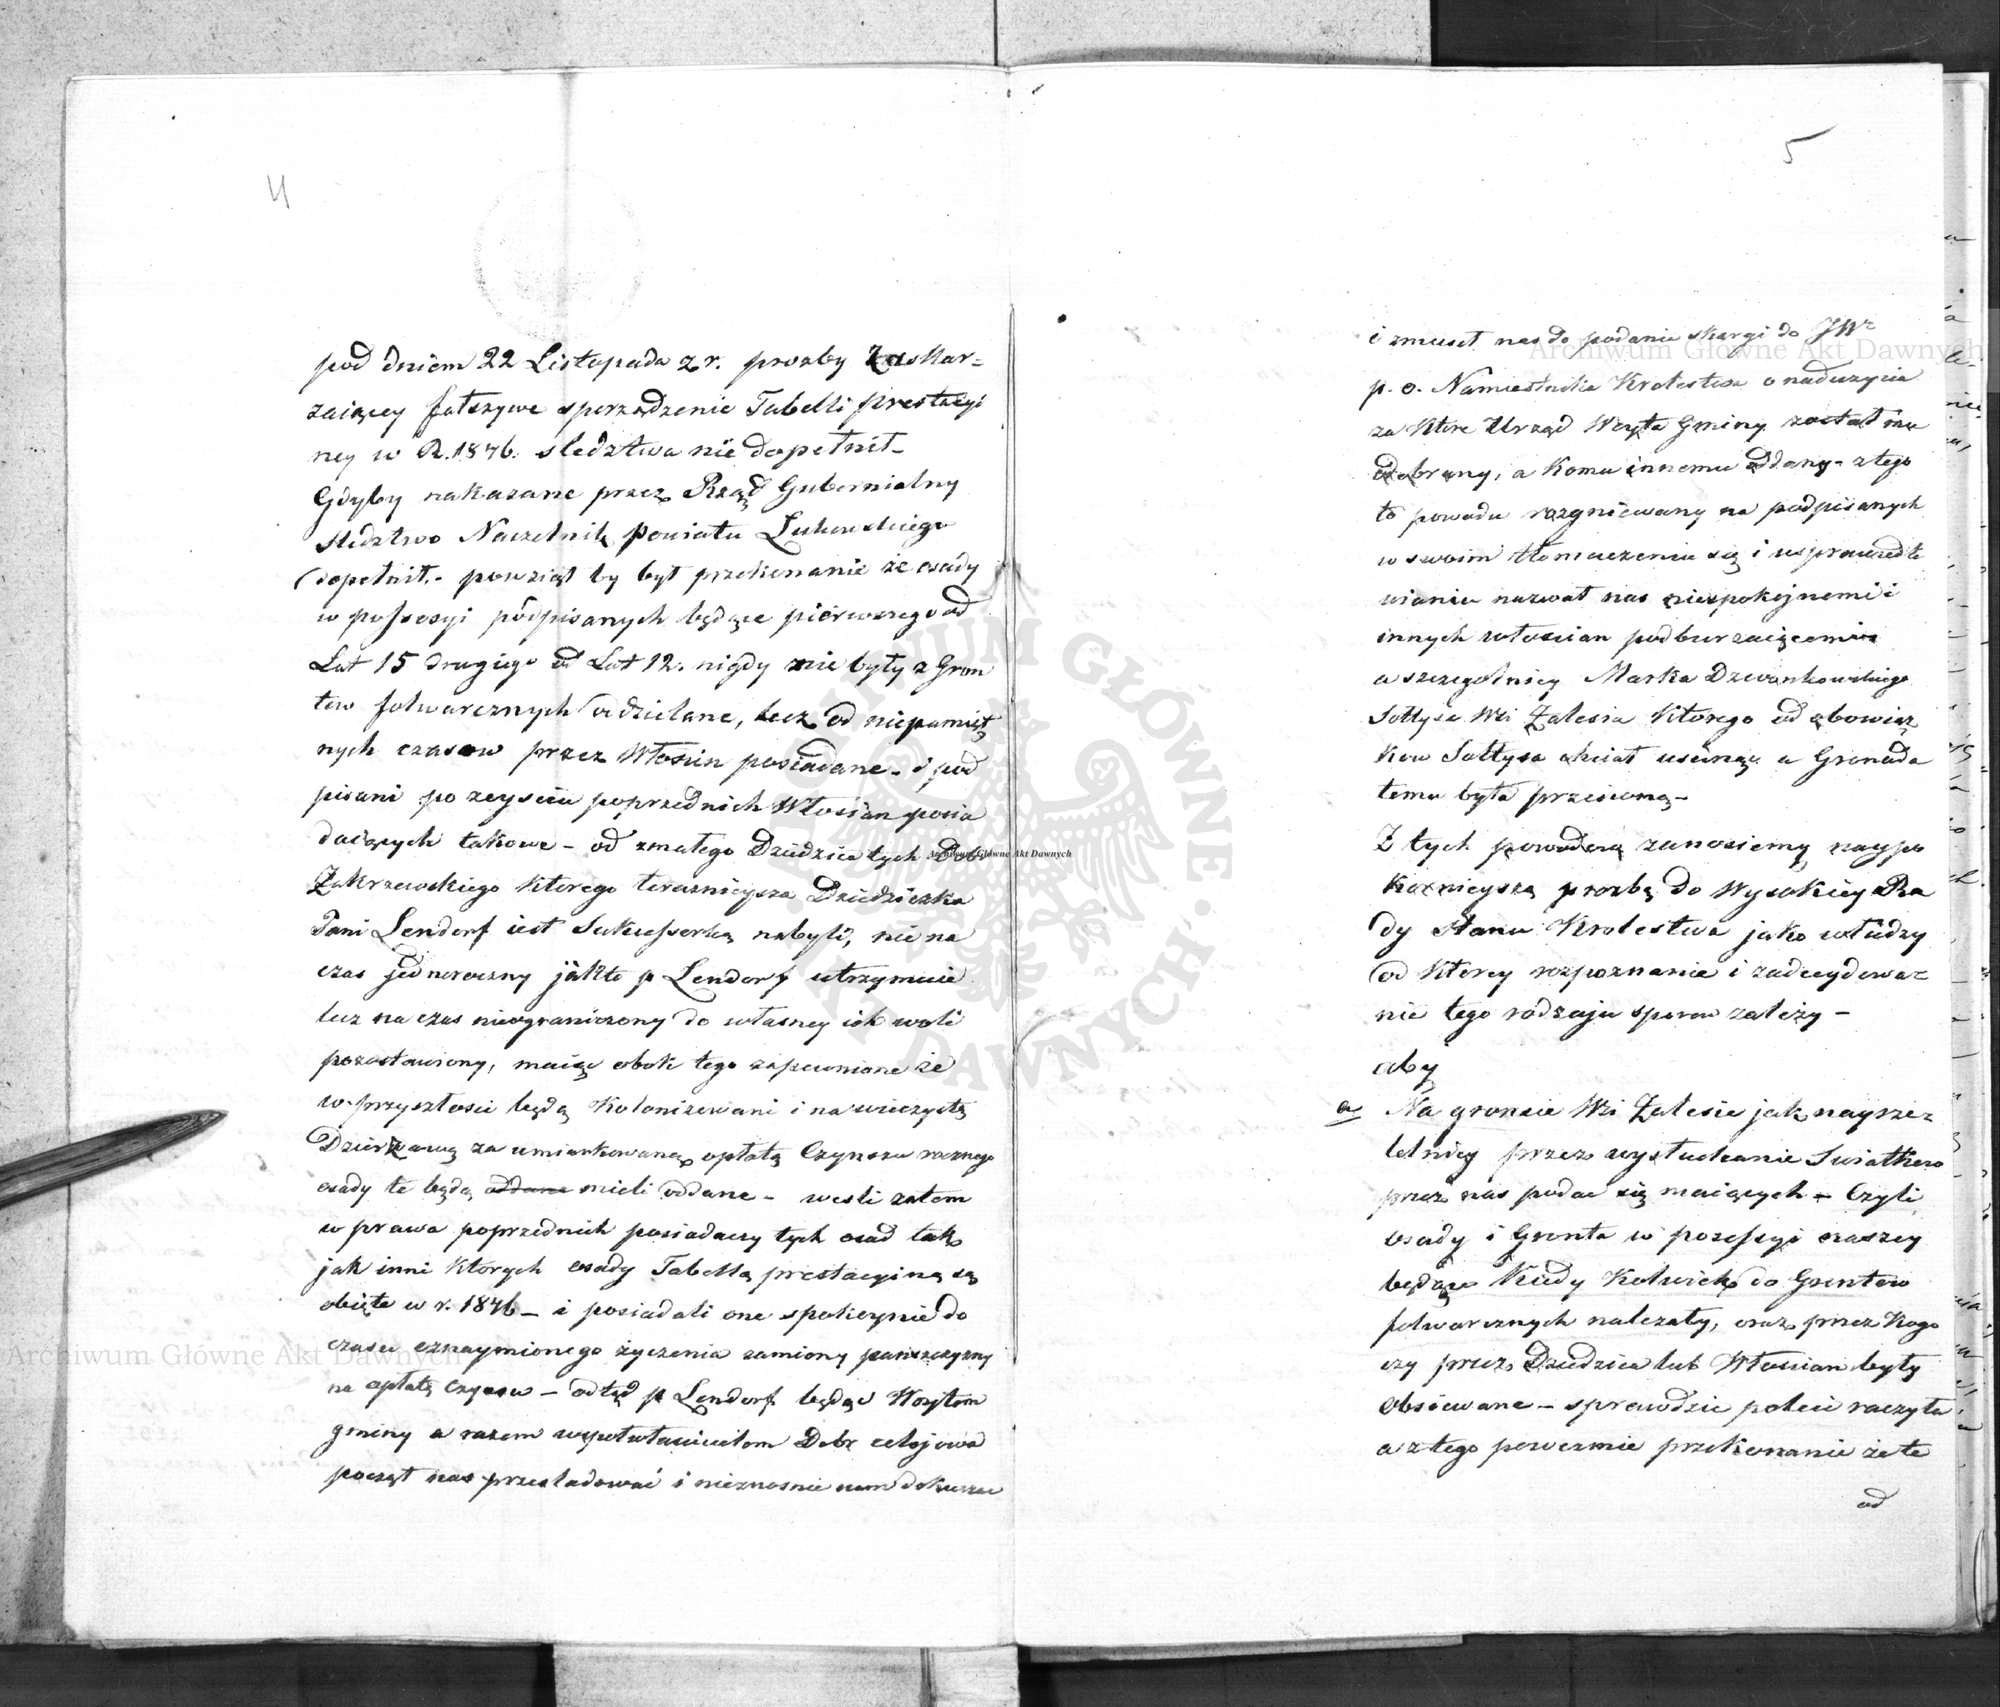 4
pod dniem 22 Listopada z r. prozby Zaskar-
zaiącey fałszywe sporządzenie Tabelli prestacyi
ney w R. 1846. sledztwa nie dopełnił-
Gdyby nakazane przez Rząd Gubernialny
sledztwo Naczelnik Powiatu Łukowskiego
dopełnił.- powziął by był przekonanie że osady
w possesyi podpisanych będące pierwszego od
Lat 15 drugiego od Lat 12. nigdy nie były z Gron
tow folwarcznych oddzielane, lecz od niepamięt
nych czasow przez Włościan posiadane - i pod
pisani po zeysciu poprzednich Włościan posia
daiących takowe - od zmałego Dziedzica tych Dobr
Zakrzewskiego ktorego teraznieysza Dziedziczka
Pani Lendorf iest Sukcessorką nabyli, nie na
czas jednoroczny jakto p Lendorf utrzymuie
lecz na czas nieograniczony do własney ich woli
pozostawiony, maiąc obok tego zapewnione że
w przyszłości będą Kolonizowani i na wieczystą
Dzierzawą za umiarkowaną opłatą Czynszu rocznego
osady te będą oddane mieli oddane - weszli zatem
w prawa poprzednich posiadaczy tych osad tak
jak inni ktorych osady Tabellą prestacyiną są
obięte w r. 1846 - i posiadali one spokoynie do
czasu oznaymionego życzenia zamiony pańszczyzny
na opłatę Czynszu - odtąd p Lendorf będąc Woytem
gminy a razem wspołwłaścicielem Dobr
począł nas prześladować i nieznosnie nam dokuczać
5
i zmusił nas do podania skargi do JW
p. o. Namiestnika Krolestwa o nadużycia
za ktore Urząd Woyta Gminy został mu
odebrany, a komu innemu oddany - z tego
to powodu rozgniewany na podpisanych
w swoim tłomaczeniu się i usprawiedli
wianiu nazwał nas niespokojnemi i
innych włoscian podburzaiącemi
a szczegolniey Marka Dzwonkowskiego
Sołtysa Wsi Zalesia ktorego od obowiąz
kow Sołtysa chciał usunąć a Gromada
temu była przeciwną -
Z tych powodow zanosiemy naypo
kornieyszą prozbę do Wysokiey Ra
dy Stanu Krolestwa jako władzy
od ktorey rozpoznanie i zadecydowa-
nie tego rodzaju sporow zależy -
aby
a Na groncie Wsi Zalesie jak nayrze-
telniey przez wysłuchanie Swiatkow
przez nas podac się maiących - Czyli
osady i Gronta w possessyi naszey
będące Kiedy Kolwiek do Grontow
folwarcznych należały, oraz przez kogo
czy przez Dziedzica lub Włoscian były
obsiewane - sprawdzic polecic raczyła
a z tego powezmie przekonanie że te
od
Archiwum Główne Akt Dawnych
Archiwum Główne Akt Dawnych
Archiwum Główne Akt Dawnych
ARCHIWUM GŁÓWNE AKT DAWNYCH